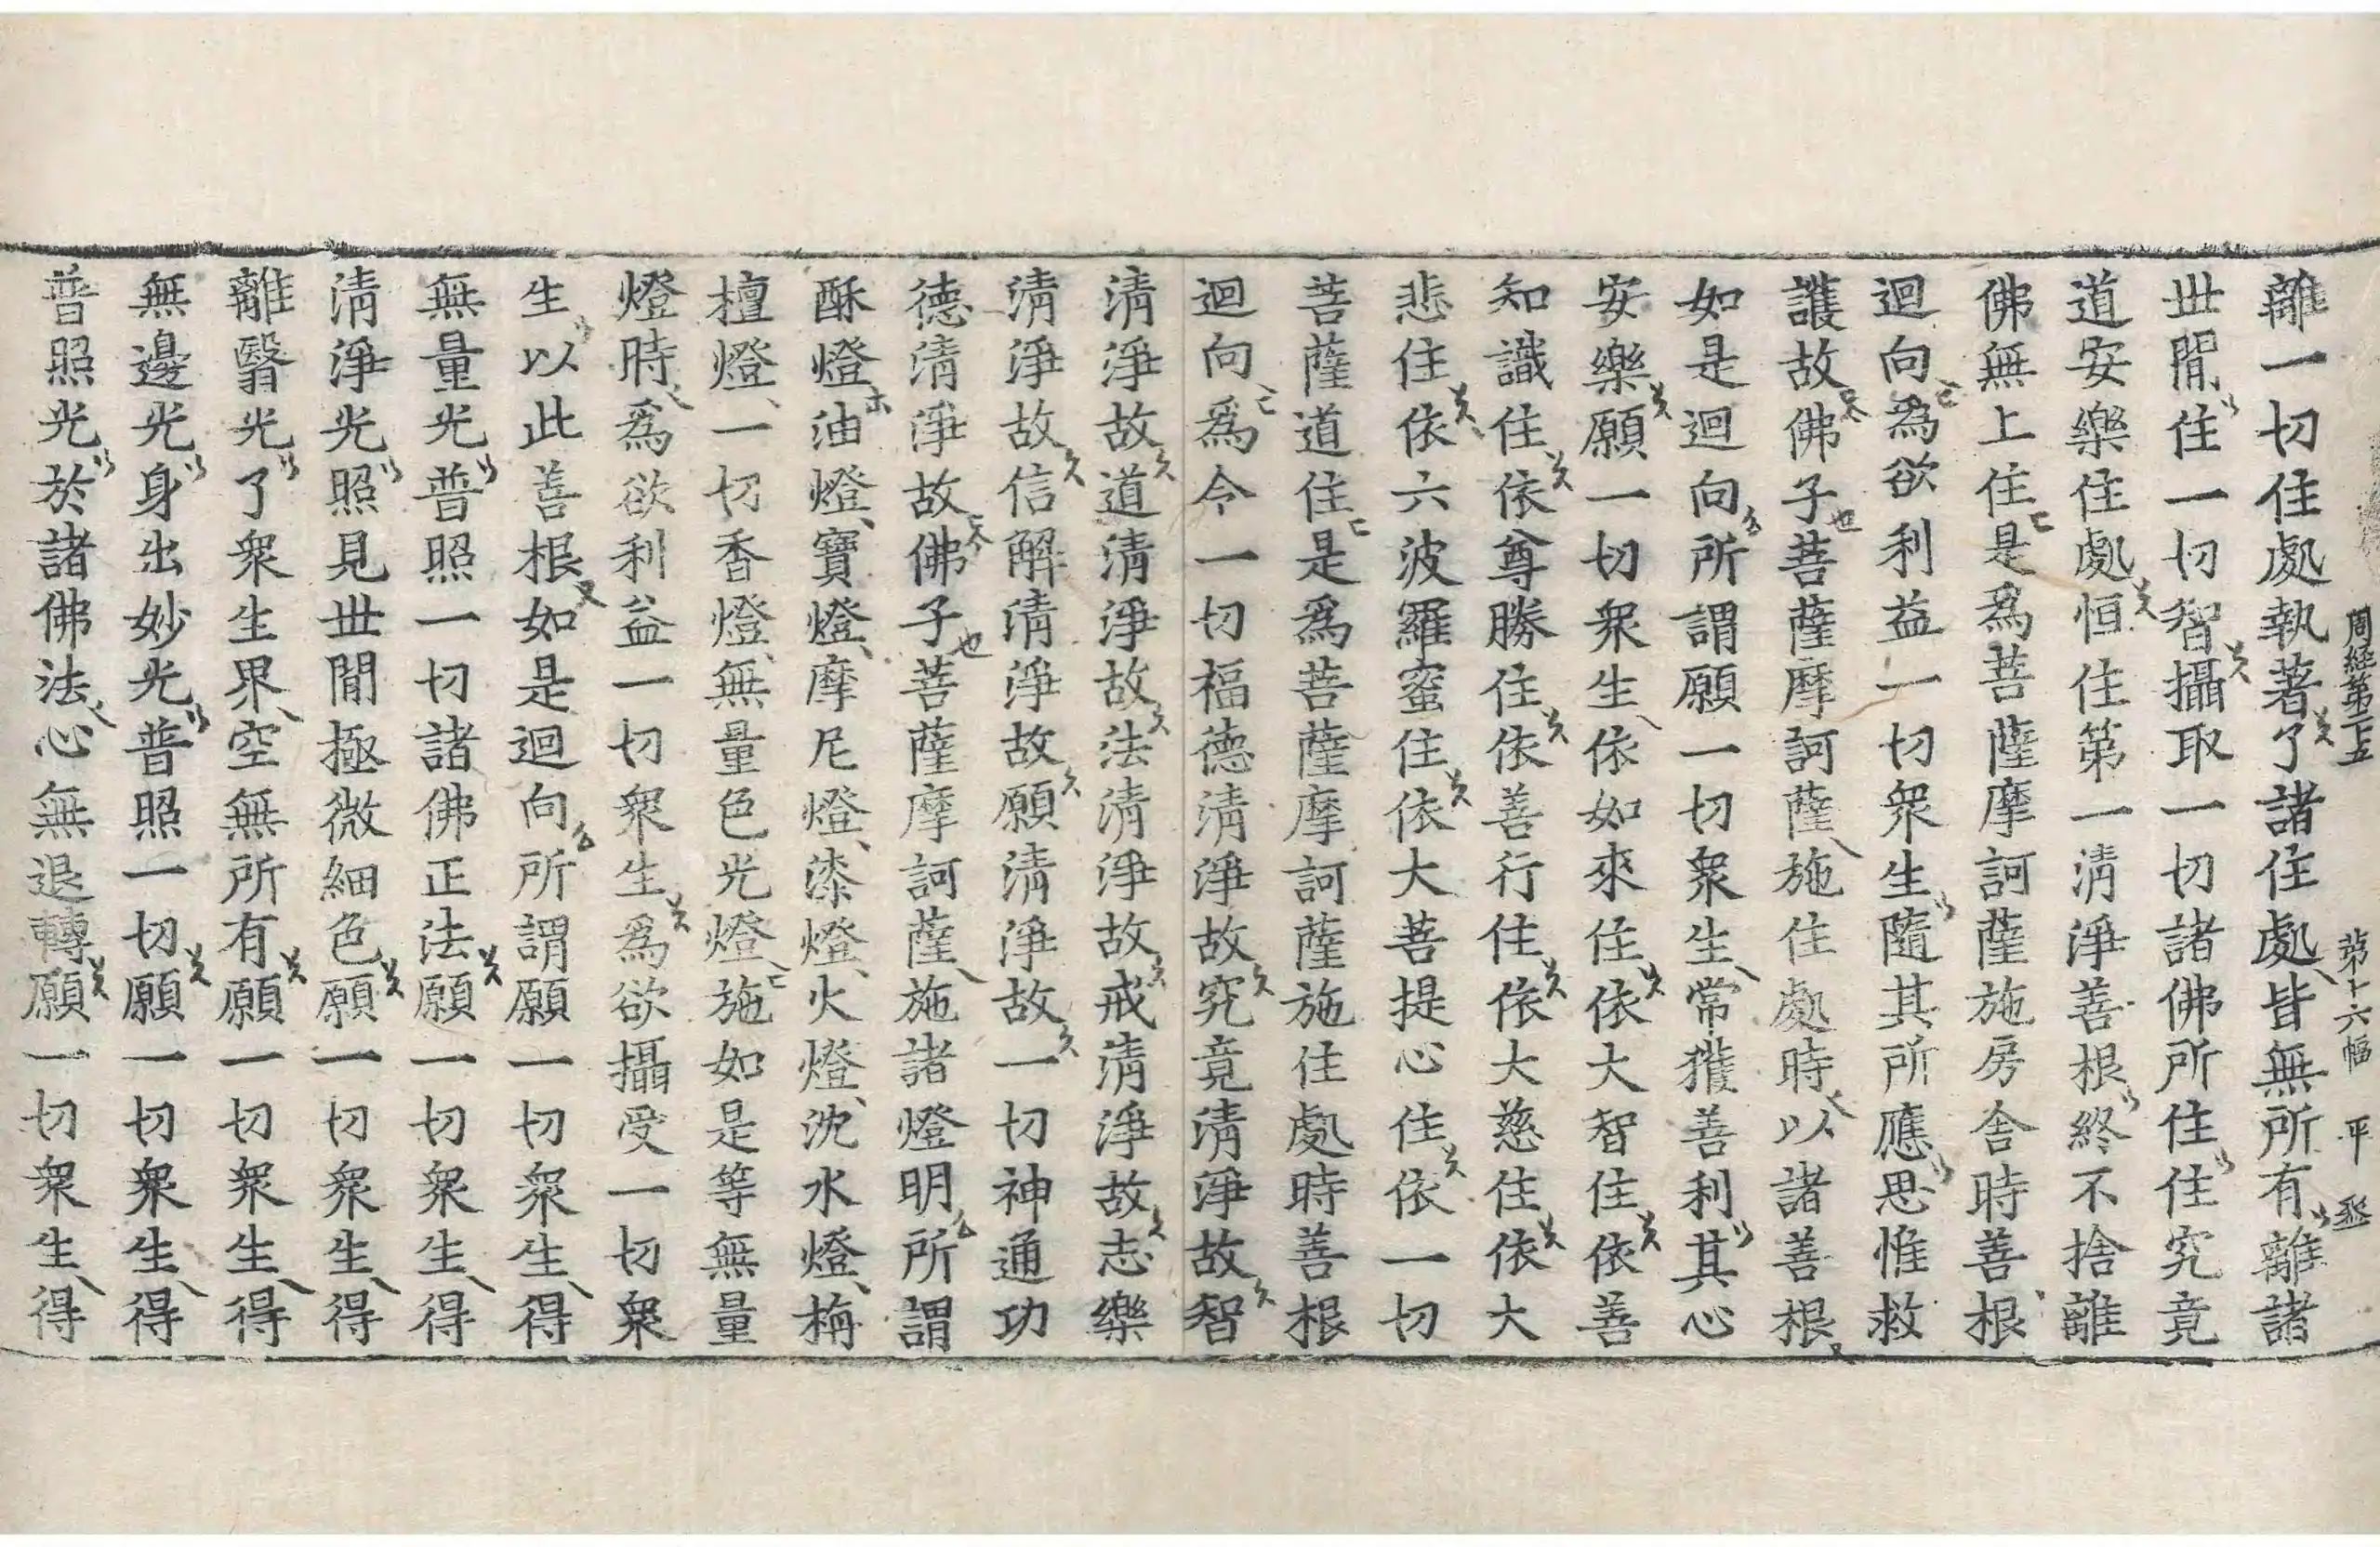 周経第二十五 第十六幅 平 丞
離一切住處執著了諸住處皆無所有離諸
世間住一切智攝取一切諸佛所住住究竟
道安樂住處恒住第一清淨善根終不捨離
佛無上住是爲菩薩摩訶薩施房舍時善根
迴向爲欲利益一切衆生隨其所應思惟救
護故佛子菩薩摩訶薩施住處時以諸善根
如是迴向所謂願一切衆生常獲善利其心
安樂願一切衆生依如來住依大智住依善
知識住依尊勝住依善行住依大慈住依大
悲住依六波羅蜜住依大菩提心住依一切
菩薩道住是爲菩薩摩訶薩施住處時善根
迴向爲令一切福德清淨故究竟清淨故智
清淨故道清淨故法清淨故戒清淨故志樂
清淨故信解清淨故願清淨故一切神通功
德清淨故佛子菩薩摩訶薩施諸燈明所謂
酥燈油燈寶燈摩尼燈漆燈火燈沈水燈栴
檀燈一切香燈無量色光燈施如是等無量
燈時爲欲利益一切衆生爲欲攝受一切衆
生以此善根如是迴向所謂願一切衆生得
無量光普照一切諸佛正法願一切衆生得
清淨光照見世間極微細色願一切衆生得
離翳光了衆生界空無所有願一切衆生得
無邊光身出妙光普照一切願一切衆生得
普照光於諸佛法心無退轉願一切衆生得